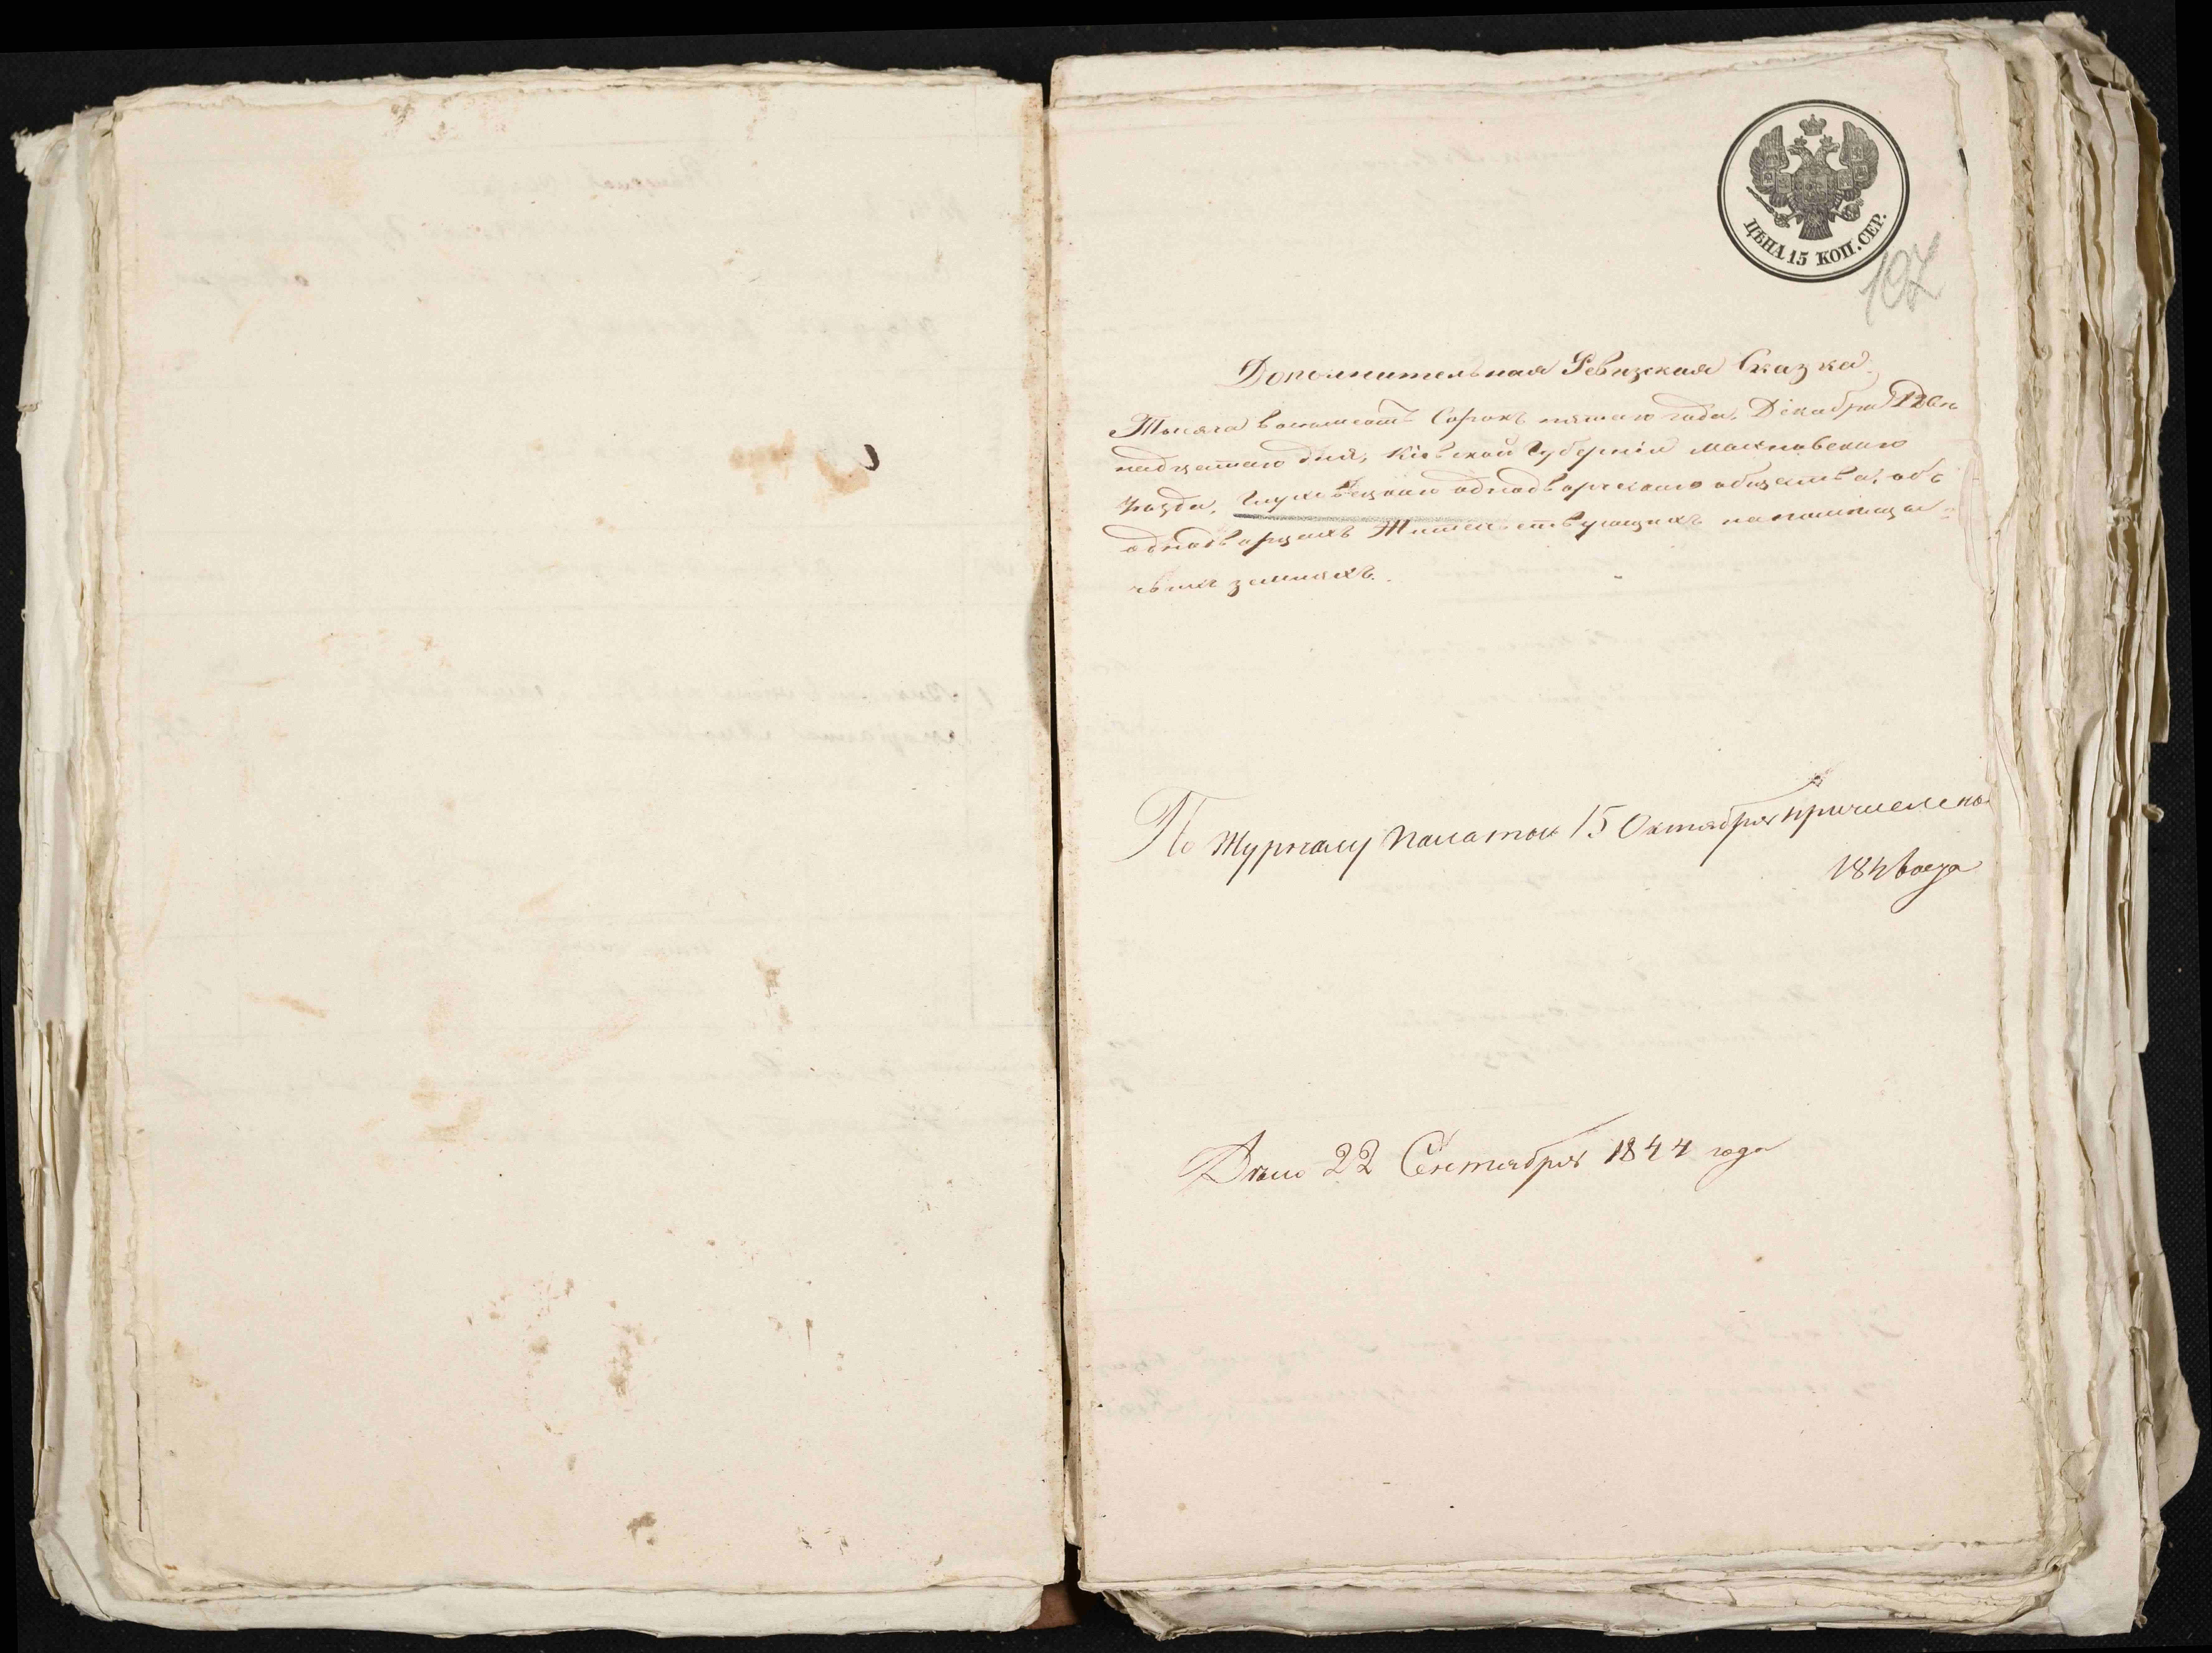 ЦѢНА 15 КОП. СЕР.
197
Дополнительная Ревизская Сказка
Тысяча восемсотъ Сорокъ пятаго года, Декабря Двѣ
надцатаго дня, Кіевской Губерніи Махновскаго
уѣзда, Глуховецкаго однодворческаго общества, объ
однодворцахъ Жительствующихъ на помѣщи
чьихъ земляхъ.
По Журналу Палаты 15 Октября причислена
184 года
Дѣло 22 Сентября 1844 года